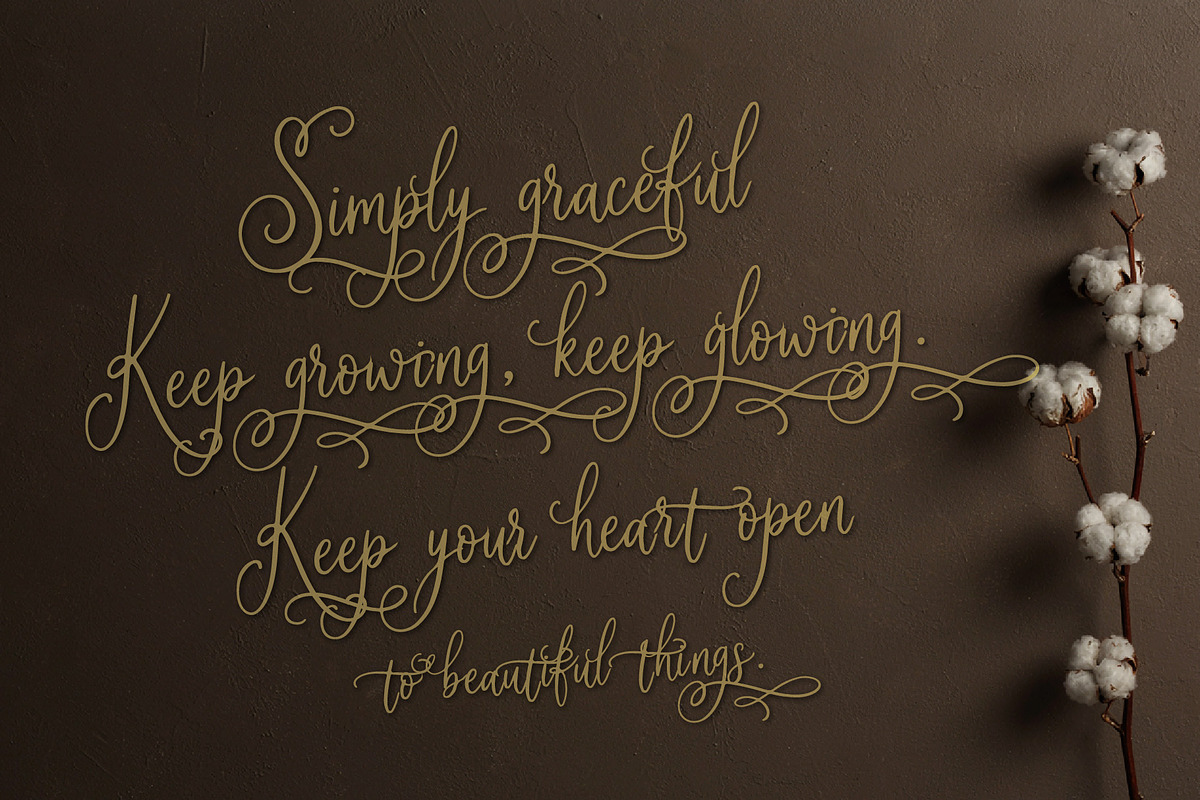 Simply graceful
Keep growing, keep glowing.
Keep your heart open
to beautiful things.